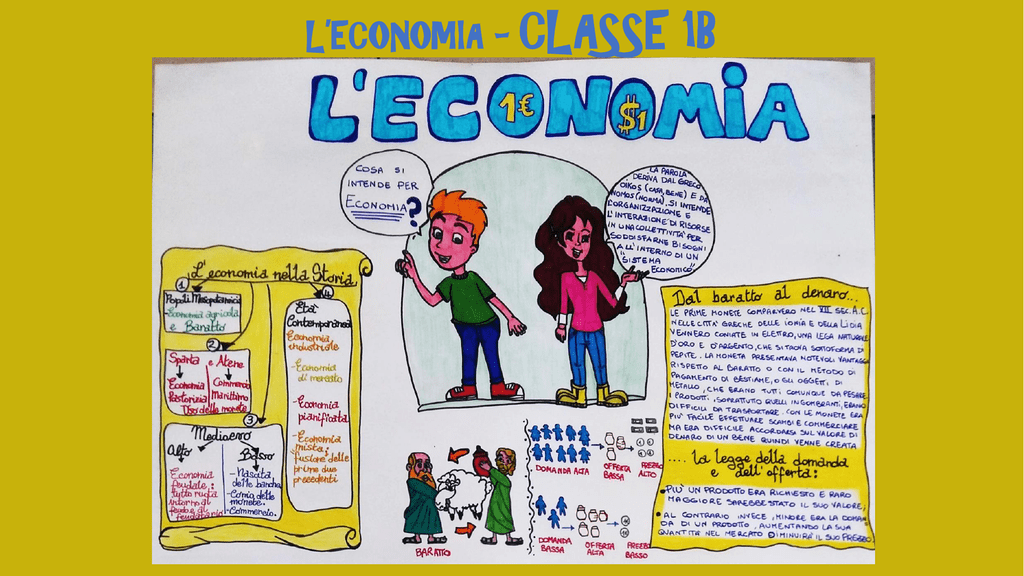 L'ECONOMIA - CLASSE 1B
L'ECONOMIA
1€
$1
COSA SI
INTENDE PER
ECONOMIA?
LA PAROLA
DERIVA DAL GRECO
OIKOS (CASA, BENE) E DA
NOMOS (NORMA). SI INTENDE
L'ORGANIZZAZIONE E
L'INTERAZIONE DI RISORSE
IN UNA COLLETTIVITA' PER
SODDISFARNE BISOGNI
ALL'INTERNO DI UN
"SISTEMA
ECONOMICO"
L'economia nella Storia
1
Popoli Mesopotamici
-Economia agricola
e Baratto
2
Sparta e Atene
Economia
Pastorizia
Commercio
Marittimo
Uso delle monete
3
Medioevo
Alto
Basso
Economia
feudale:
tutto ruota
intorno al
feudo e al
feudatario
-Nascita
delle banche
-Conio delle
monete.
-Commercio.
4
Età
Contemporanea
Economia
industriale
-Economia
di mercato
-Economia
pianificata
-Economia
mista:
fusione delle
prime due
precedenti
BARATTO
DOMANDA ALTA
OFFERTA
BASSA
PREZZO
ALTO
DOMANDA
BASSA
OFFERTA
ALTA
PREZZO
BASSO
Dal baratto al denaro...
LE PRIME MONETE COMPARVERO NEL VII SEC. A.C.
NELLE CITTA' GRECHE DELLE IONIA E DELLA LIDIA
VENNERO CONIATE IN ELETTRO, UNA LEGA NATURALE
D'ORO E D'ARGENTO, CHE SI TROVA SOTTOFORMA DI
PEPITE. LA MONETA PRESENTAVA NOTEVOLI VANTAGGI
RISPETTO AL BARATTO O CON IL METODO DI
PAGAMENTO DI BESTIAME, O GLI OGGETTI DI
METALLO, CHE ERANO TUTTI COMUNQUE DA PESARE
I PRODOTTI, SOPRATTUTO QUELLI INGOMBRANTI, ERANO
DIFFICILI DA TRASPORTARE. CON LE MONETE ERA
PIU' FACILE EFFETTUARE SCAMBI E COMMERCIARE
MA ERA DIFFICILE ACCORDARSI SUL VALORE DI
DENARO DI UN BENE QUINDI VENNE CREATA
....la legge della domanda
e dell'offerta:
PIU' UN PRODOTTO ERA RICHIESTO E RARO
MAGGIORE SAREBBE STATO IL SUO VALORE;
AL CONTRARIO INVECE, MINORE ERA LA DOMAN
DA DI UN PRODOTTO, AUMENTANDO LA SUA
QUANTITA' NEL MERCATO DIMINUIRA' IL SUO PREZZO.